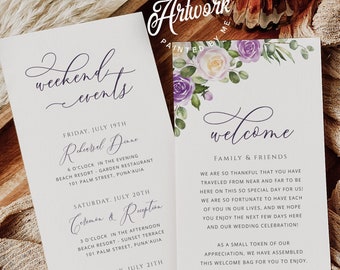 Artwork
PAINTED BY ME
weekend
events
FRIDAY, JULY 19TH
Rehearsal Dinner
6 O'CLOCK IN THE EVENING
BEACH RESORT - GARDEN RESTAURANT
101 PALM STREET, PUNA'AUIA
SATURDAY, JULY 20TH
Ceremony & Reception
5 O'CLOCK IN THE AFTERNOON
BEACH RESORT - SUNSET TERRACE
101 PALM STREET, PUNA'AUIA
JULY 21TH
welcome
FAMILY & FRIENDS
WE ARE SO THANKFUL THAT YOU HAVE
TRAVELED FROM NEAR AND FAR TO BE
HERE ON THIS SO SPECIAL DAY FOR US!
WE ARE SO FORTUNATE TO HAVE EACH
OF YOU IN OUR LIVES, AND WE HOPE
YOU ENJOY THE NEXT FEW DAYS HERE
AND OUR WEDDING CELEBRATION!
AS A SMALL TOKEN OF OUR
APPRECIATION, WE HAVE ASSEMBLED
THIS WELCOME BAG FOR YOU TO ENJOY.